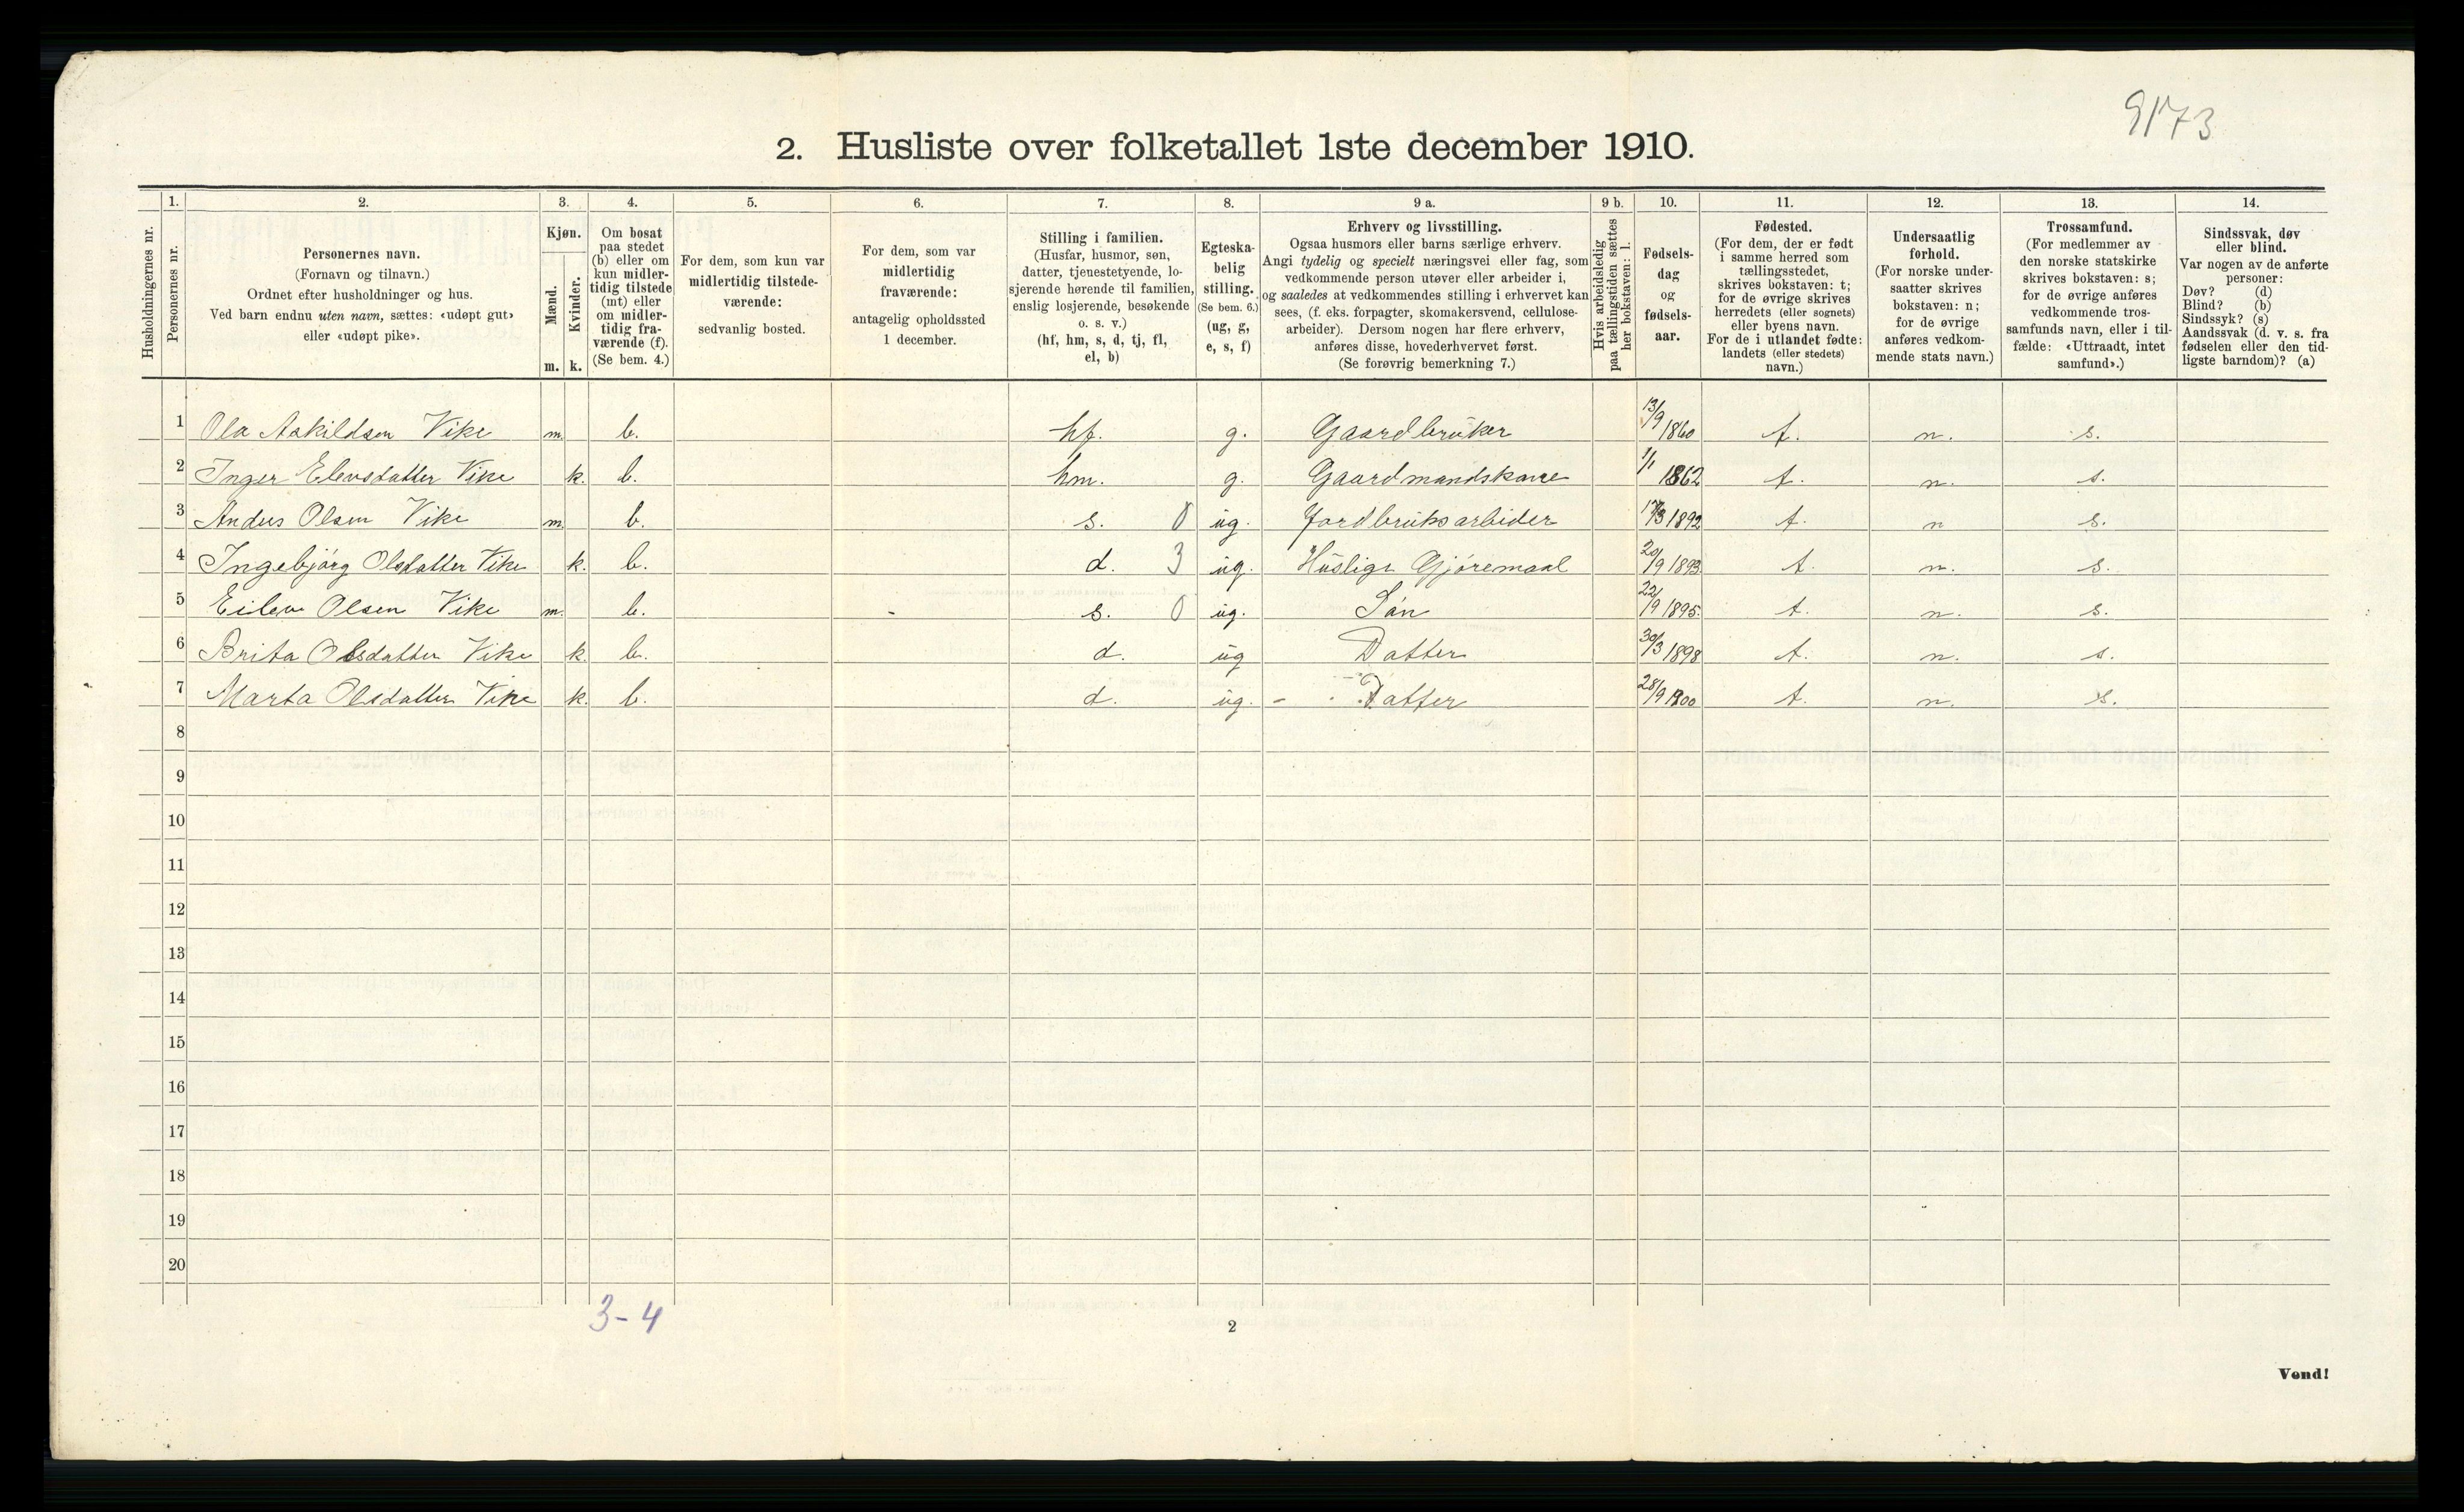 9173
2. Husliste over folketallet 1ste december 1910.
1. 2. 3. 4. 5. 6. 7. 8. 9 a. 9 b. 10. 11. 12. 13. 14.
Husholdningernes nr.
Personernes nr.
Personernes navn.
(Fornavn og tilnavn.)
Ordnet efter husholdninger og hus.
Ved barn endnu uten navn, sættes: «udøpt gut»
eller «udøpt pike».
Kjøn.
Mænd.
Kvinder.
m. k.
Om bosat
paa stedet
(b) eller om
kun midler-
tidig tilstede
(mt) eller
om midler-
tidig fra-
værende (f).
(Se bem. 4.)
For dem, som kun var
midlertidig tilstede-
værende:
sedvanlig bosted.
For dem, som var
midlertidig
fraværende:
antagelig opholdssted
1 december.
Stilling i familien.
(Husfar, husmor, søn,
datter, tjenestetyende, lo-
sjerende hørende til familien,
enslig losjerende, besøkende
o. s. v.)
(hf, hm, s, d, tj, fl,
el, b)
Egteska-
belig
stilling.
(Se bem. 6.)
(ug, g,
e, s, f)
Erhverv og livsstilling.
Ogsaa husmors eller barns særlige erhverv.
Angi tydelig og specielt næringsvei eller fag, som
vedkommende person utøver eller arbeider i,
og saaledes at vedkommendes stilling i erhvervet kan
sees, (f. eks. forpagter, skomakersvend, cellulose-
arbeider). Dersom nogen har flere erhverv,
anføres disse, hovederhvervet først.
(Se forøvrig bemerkning 7.)
Hvis arbeidsledig
paa tællingstiden sættes
her bokstaven: l.
Fødsels-
dag
og
fødsels-
aar.
Fødested.
(For dem, der er født
i samme herred som
tællingsstedet,
skrives bokstaven: t;
for de øvrige skrives
herredets (eller sognets)
eller byens navn.
For de i utlandet fødte:
landets (eller stedets)
navn.)
Undersaatlig
forhold.
(For norske under-
saatter skrives
bokstaven: n;
for de øvrige
anføres vedkom-
mende stats navn.)
Trossamfund.
(For medlemmer av
den norske statskirke
skrives bokstaven: s;
for de øvrige anføres
vedkommende tros-
samfunds navn, eller i til-
fælde: «Uttraadt, intet
samfund».)
Sindssvak, døv
eller blind.
Var nogen av de anførte
personer:
Døv? (d)
Blind? (b)
Sindssyk? (s)
Aandssvak (d. v. s. fra
fødselen eller den tid-
ligste barndom)? (a)
1 Ola Askildsen Vike m. b. hf. g. Gaardbruker 13/9 1860 t. n. s.
2 Inger Elevsdatter Vike k. b. hm. g. Gaardmandskone 1/1 1862 t. n. s.
3 Anders Olsen Vike m. b. s. 0 ug. Jordbruksarbeider 1892 t. n s.
4 Ingebjørg Olsdatter Vike k. b. d. 3 ug. Huslige Gjøremaal 20/9 1893. t. n. s.
5 Eilev Olsen Vike m. b. - s. 0 ug. Søn 22/9 1895. t. n. s.
6 Brita Olsdatter Vike k. b. d. ug Datter 30/3 1898 t. n. s.
7 Marta Olsdatter Vike k. b. d. ug. - Datter 28/9 1900 t. n. s.
8
9
10
11
12
13
14
15
16
17
18
19
20
3-4
2
Vend!